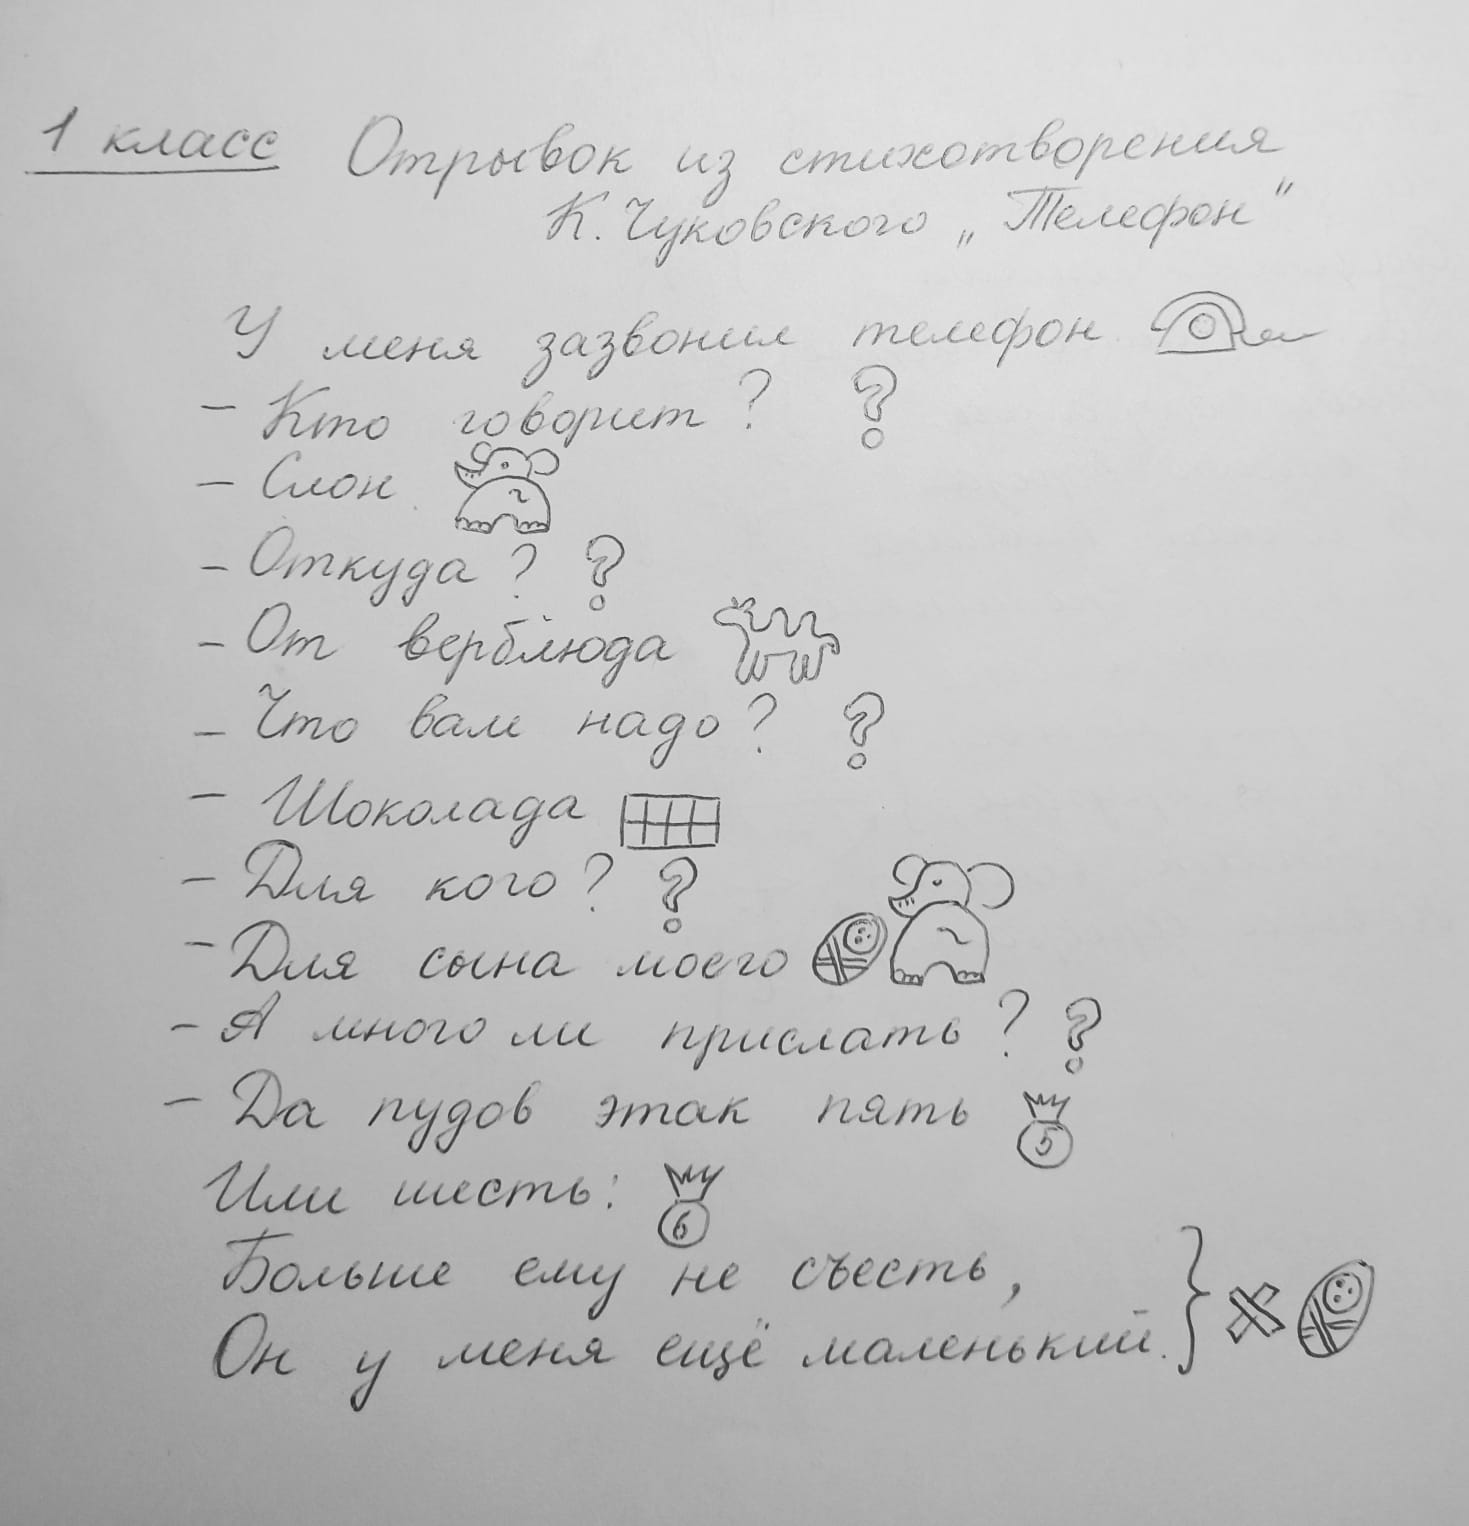 1 класс Отрывок из стихотворения
К. Чуковского „Телефон"
У меня зазвонил телефон.
- Кто говорит? ?
- Слон.
- Откуда? ?
- От верблюда
- Что вам надо? ?
- Шоколада
- Для кого? ?
- Для сына моего
- А много ли прислать? ?
- Да пудов этак пять 5
Или шесть: 6
Больше ему не съесть,
Он у меня ещё маленький.